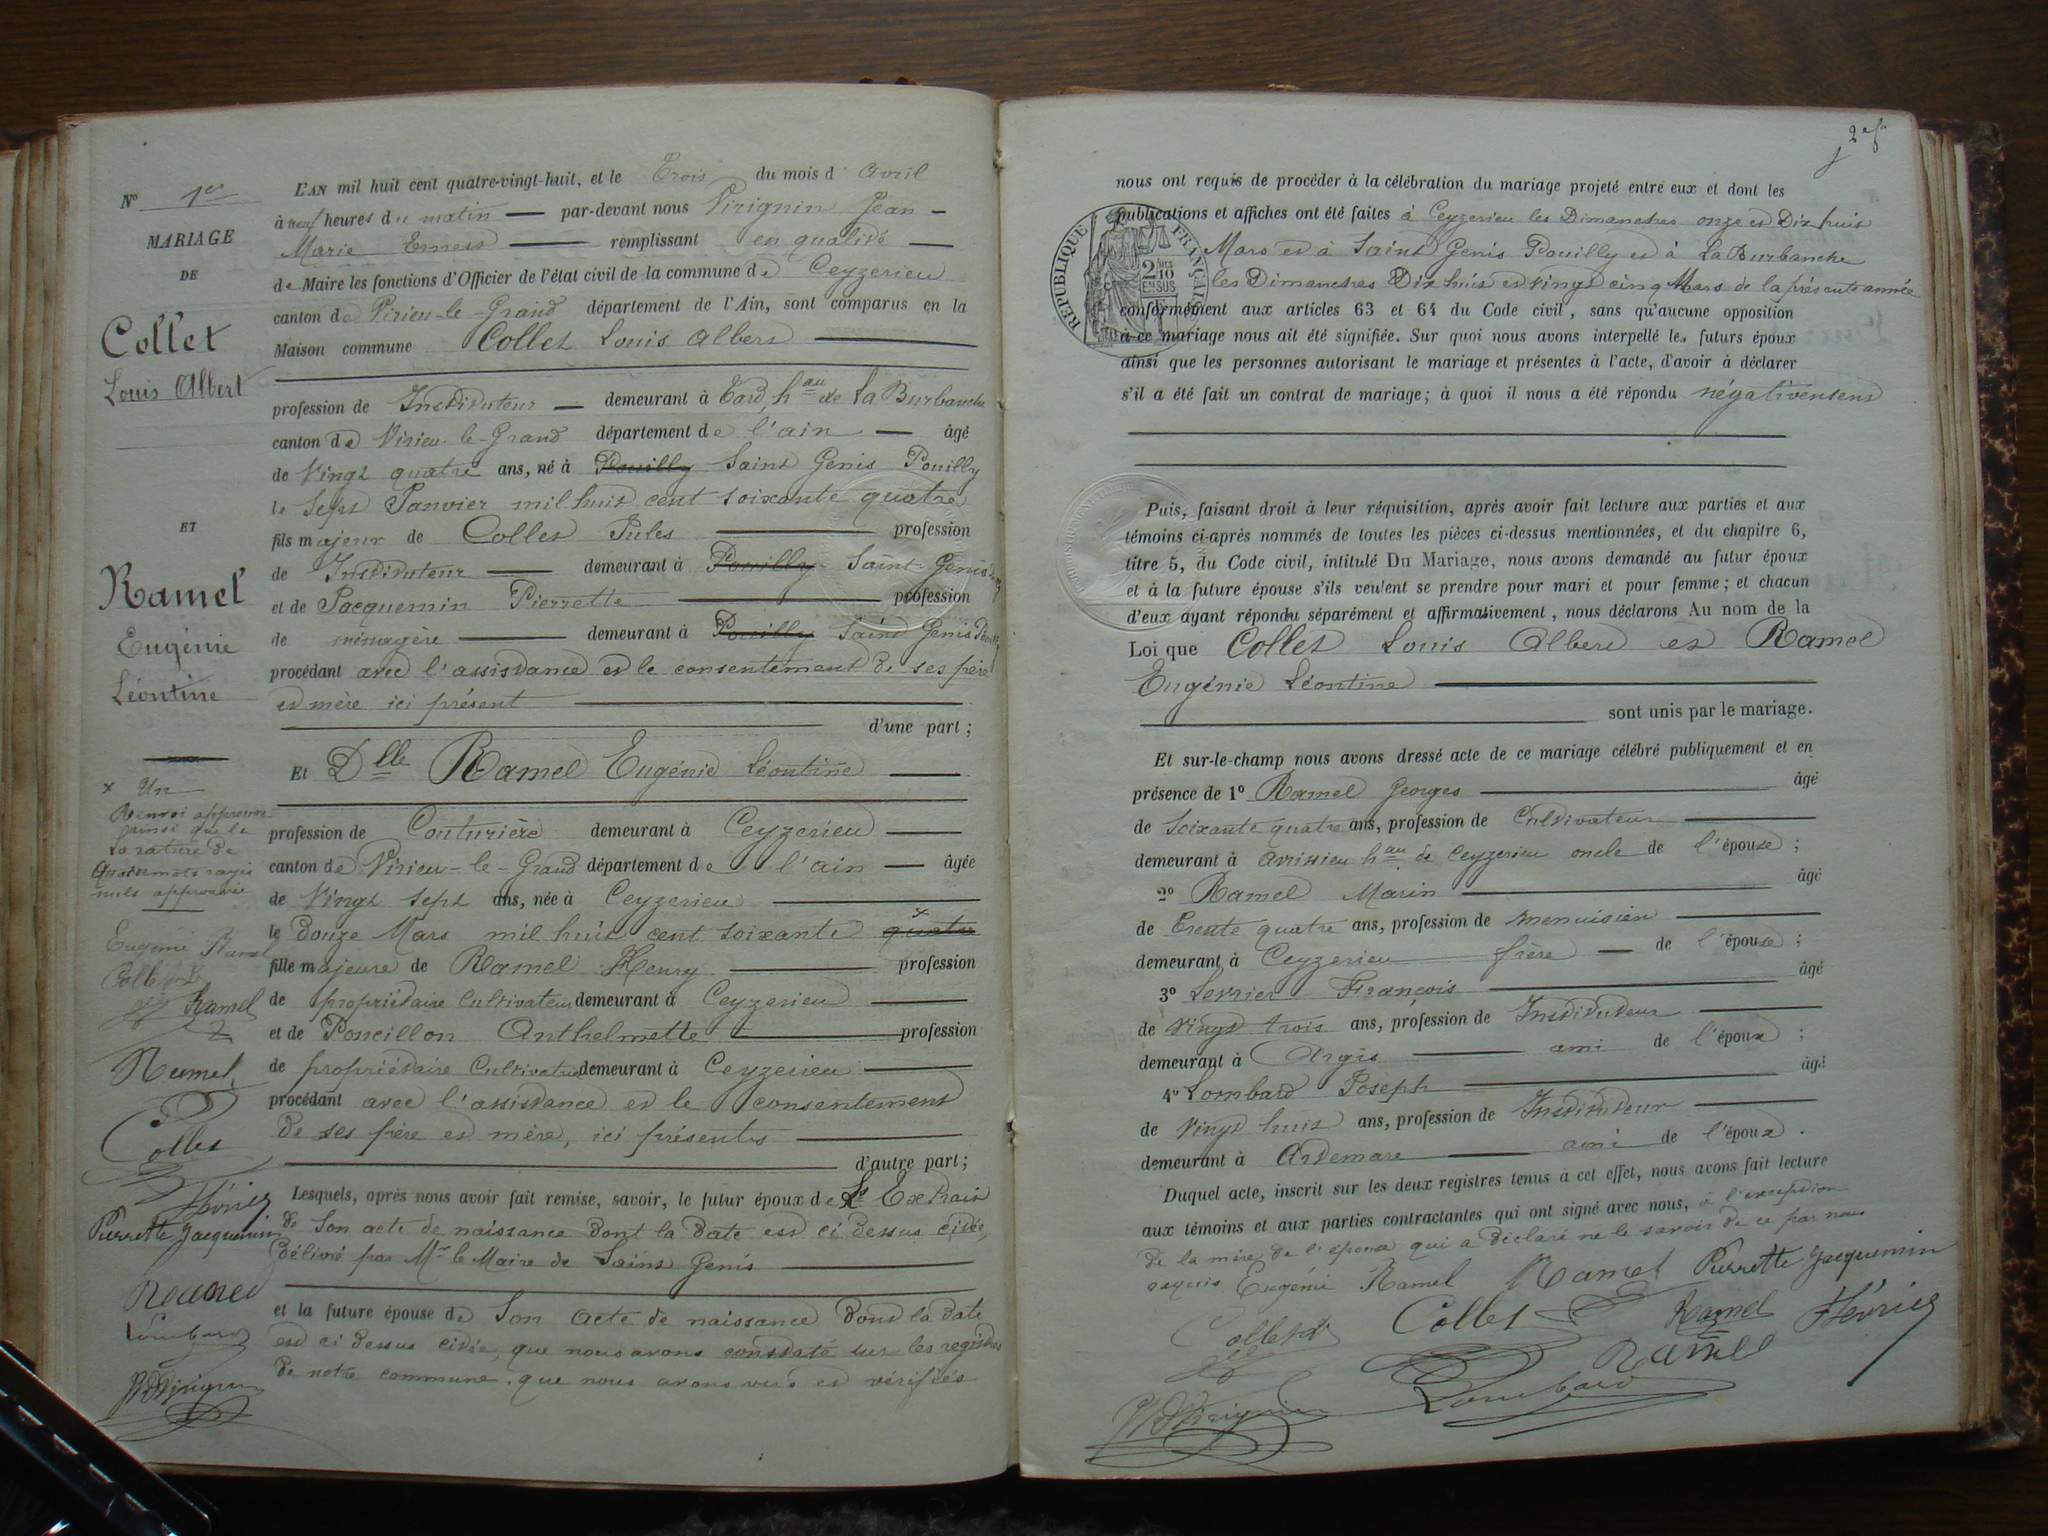 Nº 1er
MARIAGE
DE
Collet
Louis Albert
ET
Ramel
Eugénie
Léontine
L'AN mil huit cent quatre-vingt-huit, et le Trois du mois d' avril
à neuf heures du matin — par-devant nous Virignin Jean -
Marie Ernest — remplissant en qualité —
de Maire les fonctions d'Officier de l'état civil de la commune de Ceyzerieu
canton de Virieu-le-Grand département de l'Ain, sont comparus en la
Maison commune Collet Louis Albert
profession de Instituteur — demeurant à Tard, hau de La Burbanche
canton de Virieu-le-Grand département de l'ain — âgé
de Vingt quatre ans, né à Pouilly Saint Genis Pouilly
le Sept Janvier mil huit cent soixante quatre
fils majeur de Collet Jules — profession
de Instituteur — demeurant à Pouilly Saint-Genis
et de Jacquemin Pierrette — profession
de ménagère — demeurant à Pouilly Saint Genis
procédant avec l'assistance et le consentement de ses père
et mère ici présent
d'une part ;
Et Dlle Ramel Eugénie Léontine
profession de Couturière demeurant à Ceyzerieu
canton de Virieu-le-Grand département de l'ain — âgée
de Vingt sept ans, née à Ceyzerieu
le Douze Mars mil huit cent soixante x quatre
fille majeure de Ramel Henry — profession
de propriétaire Cultivateur demeurant à Ceyzerieu
et de Poncillon Anthelmette — profession
de propriétaire Cultivatrice demeurant à Ceyzerieu
procédant avec l'assistance et le consentement
de ses père et mère, ici présents
d'autre part ;
Lesquels, après nous avoir fait remise, savoir, le futur époux de L'Extrait
de Son acte de naissance dont la date est ci dessus citée,
délivré par Mr le Maire de Saint Genis
et la future épouse de Son acte de naissance dont la date
est ci dessus citée, que nous avons constaté sur les registres
de notre commune. que nous avons vus et vérifiés
x Un
Renvoi approuvé
ainsi que la
la rature de
quatre mots rayés
nuls approuvée
Eugénie Ramel
Collet
Ramel
Ramel
Collet
Pierrette Jacquemin
Ramel
Lombard
Virignin
2
nous ont requis de procéder à la célébration du mariage projeté entre eux et dont les
publications et affiches ont été faites à Ceyzerieu les Dimanches onze et Dix huit
Mars et à Saint Genis Pouilly et à La Burbanche
les Dimanches Dix huit et Vingt cinq Mars de la présente année
conformément aux articles 63 et 64 du Code civil, sans qu'aucune opposition
à ce mariage nous ait été signifiée. Sur quoi nous avons interpellé les futurs époux
ainsi que les personnes autorisant le mariage et présentes à l'acte, d'avoir à déclarer
s'il a été fait un contrat de mariage ; à quoi il nous a été répondu négativement
RÉPUBLIQUE FRANÇAISE
2/10 EN SUS
Puis, faisant droit à leur réquisition, après avoir fait lecture aux parties et aux
témoins ci-après nommés de toutes les pièces ci-dessus mentionnées, et du chapitre 6,
titre 5, du Code civil, intitulé Du Mariage, nous avons demandé au futur époux
et à la future épouse s'ils veulent se prendre pour mari et pour femme ; et chacun
d'eux ayant répondu séparément et affirmativement, nous déclarons Au nom de la
Loi que Collet Louis Albert et Ramel
Eugénie Léontine
sont unis par le mariage.
Et sur-le-champ nous avons dressé acte de ce mariage célébré publiquement et en
présence de 1º Ramel Georges — âgé
de Soixante quatre ans, profession de Cultivateur
demeurant à Avrissieu hau de Ceyzerieu oncle de l'épouse ;
2º Ramel Marin — âgé
de Trente quatre ans, profession de menuisier
demeurant à Ceyzerieu frère — de l'épouse ;
3º Levrier François — âgé
de Vingt trois ans, profession de Instituteur
demeurant à Argis — ami de l'époux ;
4º Lombard Joseph — âgé
de Vingt huit ans, profession de Instituteur
demeurant à Artemare — ami de l'époux.
Duquel acte, inscrit sur les deux registres tenus à cet effet, nous avons fait lecture
aux témoins et aux parties contractantes qui ont signé avec nous, à l'exception
de la mère de l'épouse qui a déclaré ne le savoir de ce par nous
requis Eugénie Ramel Ramel Pierrette Jacquemin
Collet Collet Ramel
Ramel
Virignin Lombard